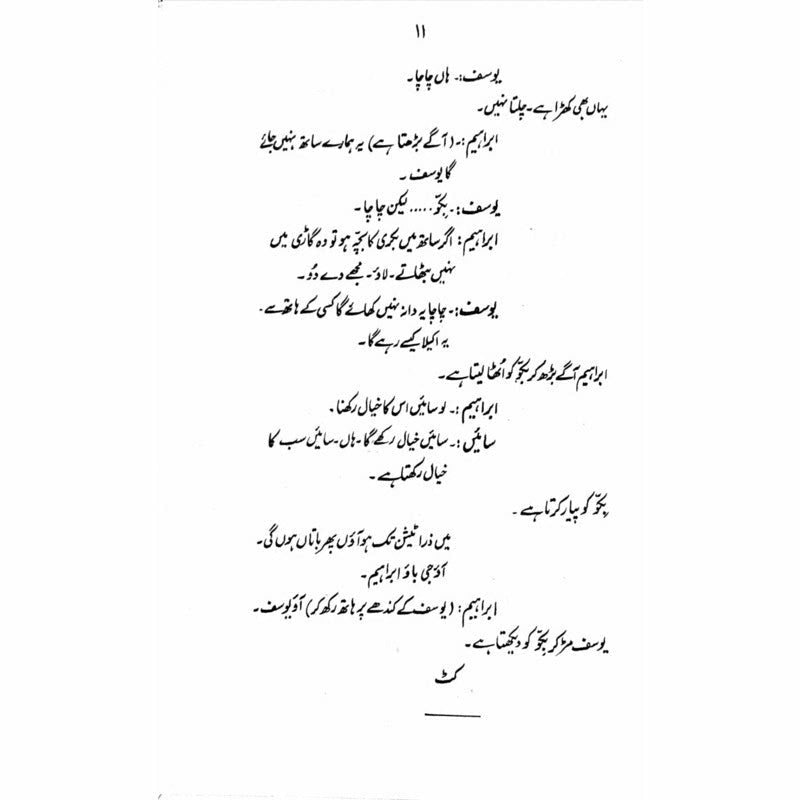 ۱۱
یوسف:۔ ہاں چاچا۔
یہاں بھی کھڑا ہے۔ چلتا نہیں۔
ابراہیم:۔ (آگے بڑھتا ہے) یہ ہمارے ساتھ نہیں جائے
گا یوسف ۔
یوسف:۔ بِکّو ..... لیکن چاچا ۔
ابراہیم: اگر ساتھ میں بکری کا بچّہ ہو تو وہ گاڑی میں
نہیں بٹھاتے۔ لاؤ۔ مجھے دے دُو ۔
یوسف:۔ چاچا یہ دانہ نہیں کھائے گا کسی کے ہاتھ سے۔
یہ اکیلا کیسے رہے گا۔
ابراہیم آگے بڑھ کر بکّو کو اُٹھا لیتا ہے۔
ابراہیم :۔ لو سائیں اس کا خیال رکھنا۔
سائیں :۔ سائیں خیال رکھے گا۔ ہاں۔ سائیں سب کا
خیال رکھتا ہے ۔
بِکّو کو پیار کرتا ہے ۔
میں ذرا ٹیشن تک ہو آؤں پھر باتاں ہوں گی۔
آؤ جی باؤ ابراہیم۔
ابراہیم: (یوسف کے کندھے پر ہاتھ رکھ کر) آؤ یوسف۔
یوسف مڑ کر بکّو کو دیکھتا ہے۔
کٹ